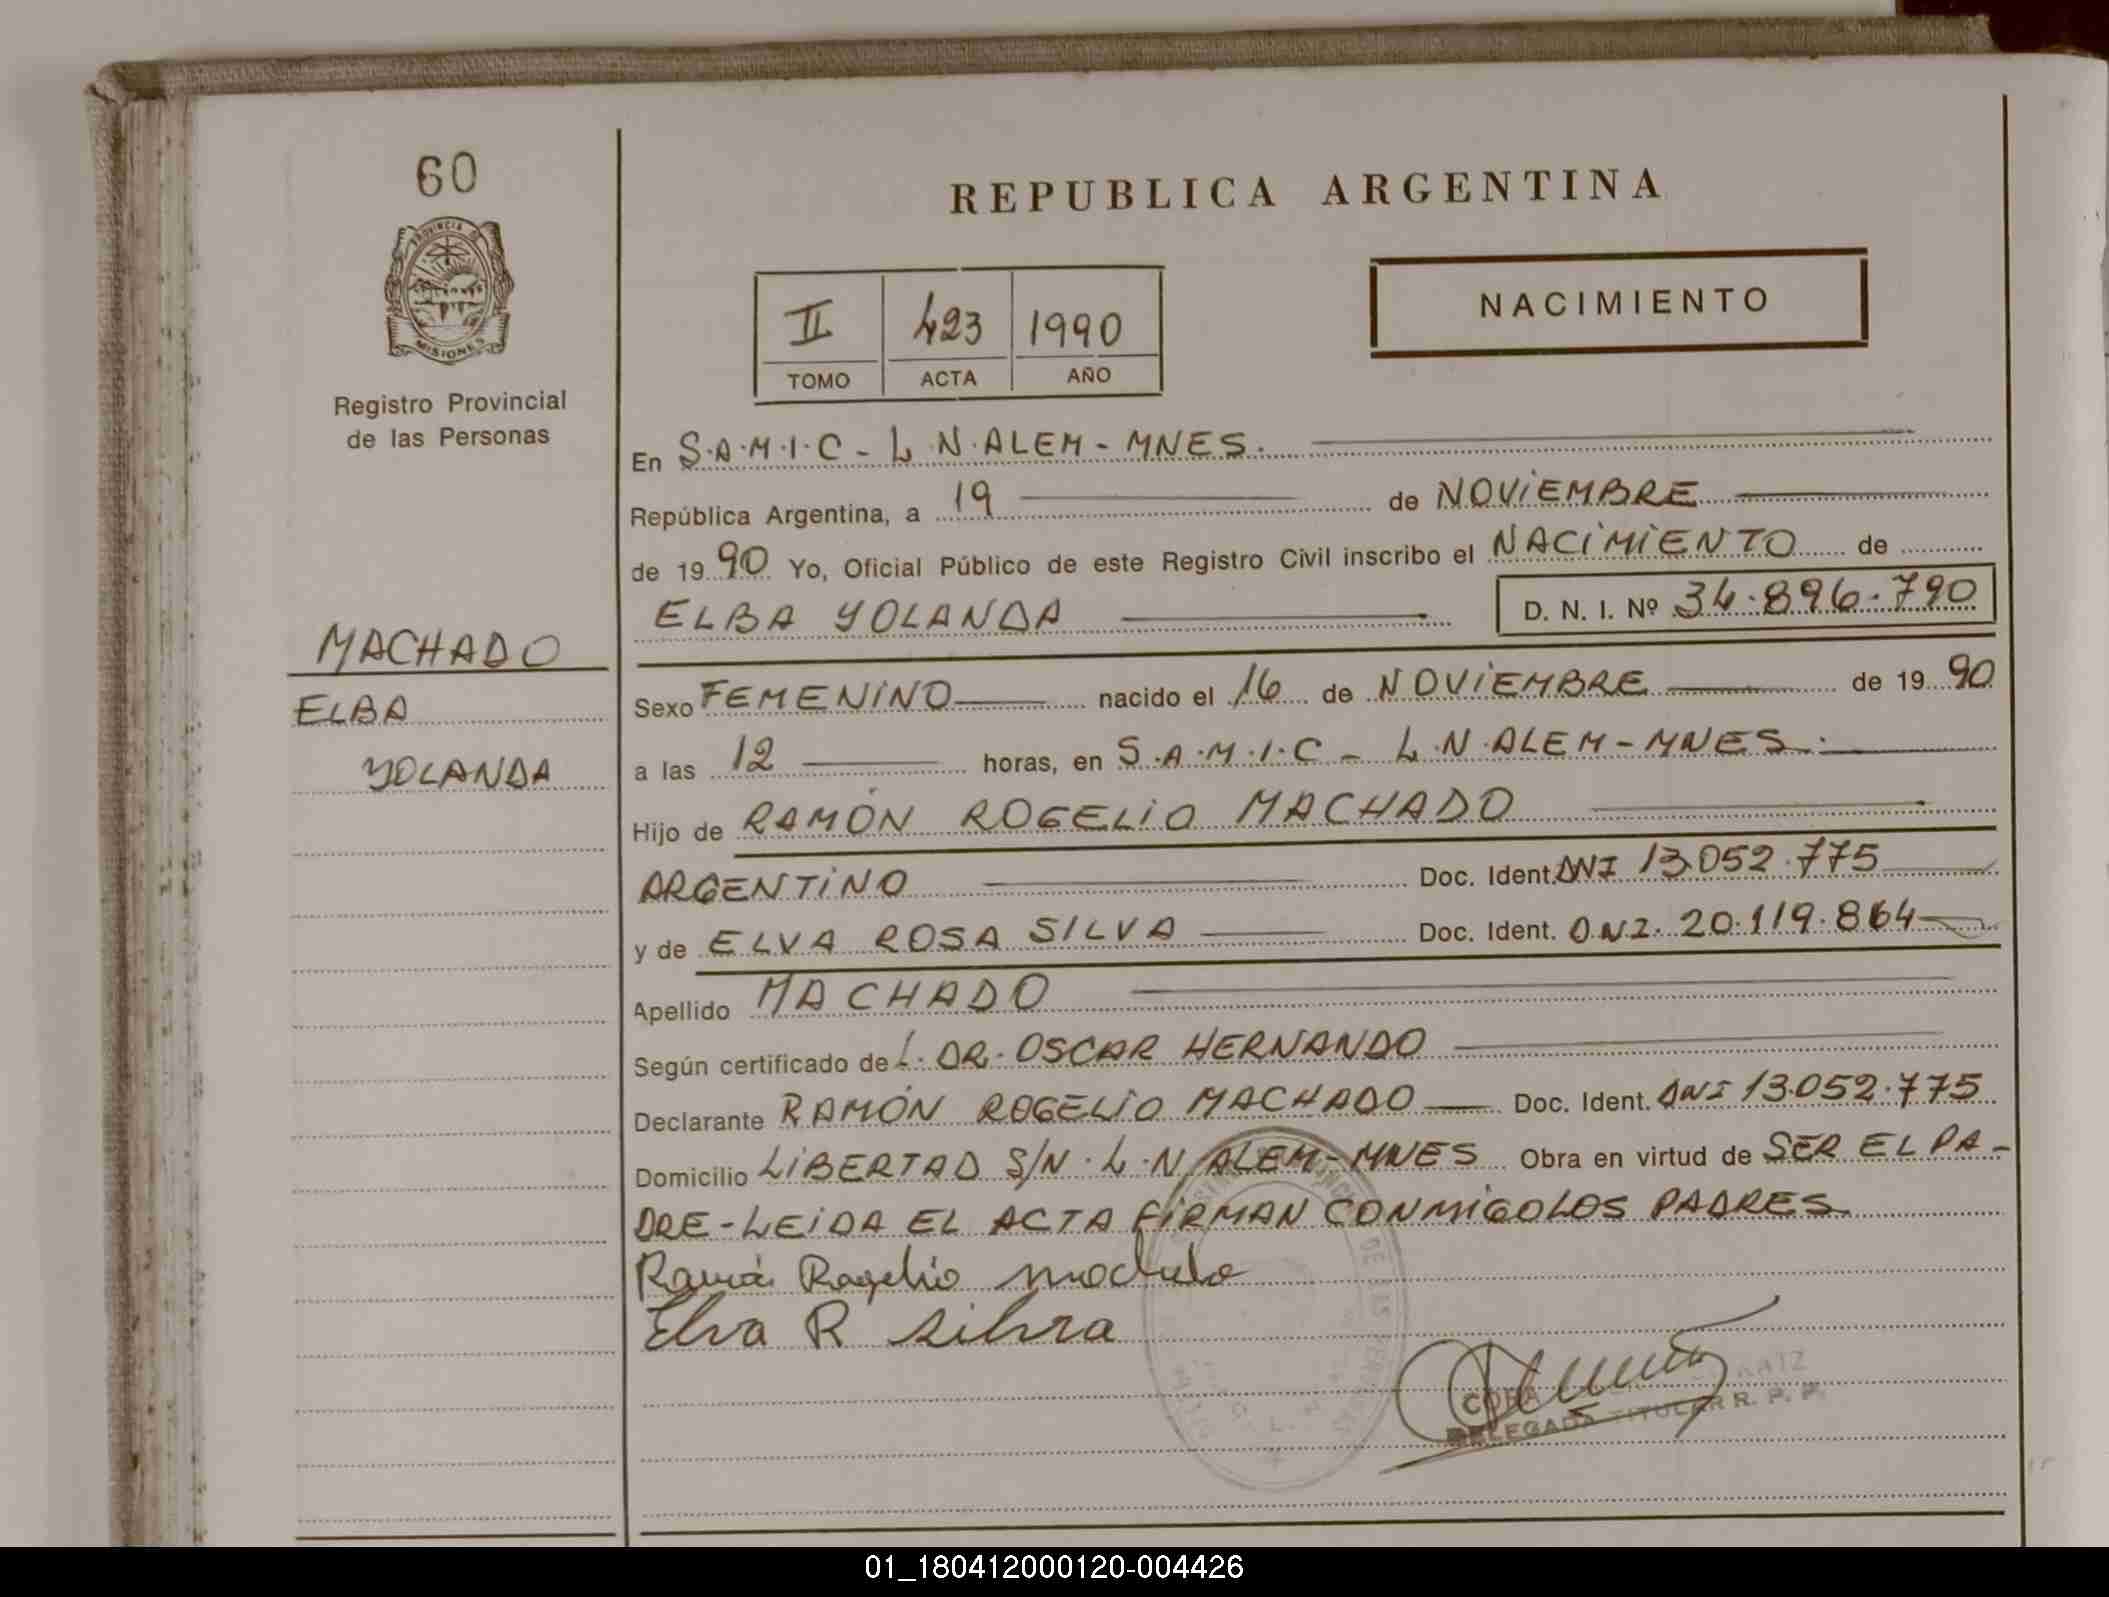 60
PROVINCIA DE
MISIONES
Registro Provincial
de las Personas
MACHADO
ELBA
YOLANDA
REPUBLICA ARGENTINA
NACIMIENTO
II 423 1990
TOMO ACTA AÑO
En S.A.M.I.C - L.N.ALEM - MNES.
República Argentina, a 19 de NOVIEMBRE
de 1990 Yo, Oficial Público de este Registro Civil inscribo el NACIMIENTO de
ELBA YOLANDA D. N. I. Nº 34.896.790
Sexo FEMENINO nacido el 16 de NOVIEMBRE de 1990
a las 12 horas, en S.A.M.I.C - L.N.ALEM - MNES.
Hijo de RAMÓN ROGELIO MACHADO
ARGENTINO Doc. Ident. DNI 13.052.775
y de ELVA ROSA SILVA Doc. Ident. D.N.I. 20.119.864
Apellido MACHADO
Según certificado de L. DR. OSCAR HERNANDO
Declarante RAMÓN ROGELIO MACHADO Doc. Ident. DNI 13.052.775
Domicilio LIBERTAD S/N. L.N.ALEM - MNES Obra en virtud de SER EL PA-
DRE - LEIDA EL ACTA FIRMAN CONMIGO LOS PADRES
Ramón Rogelio Machado
Elva R Silvra
DELEGADA TITULAR R. P. P.
01_180412000120-004426